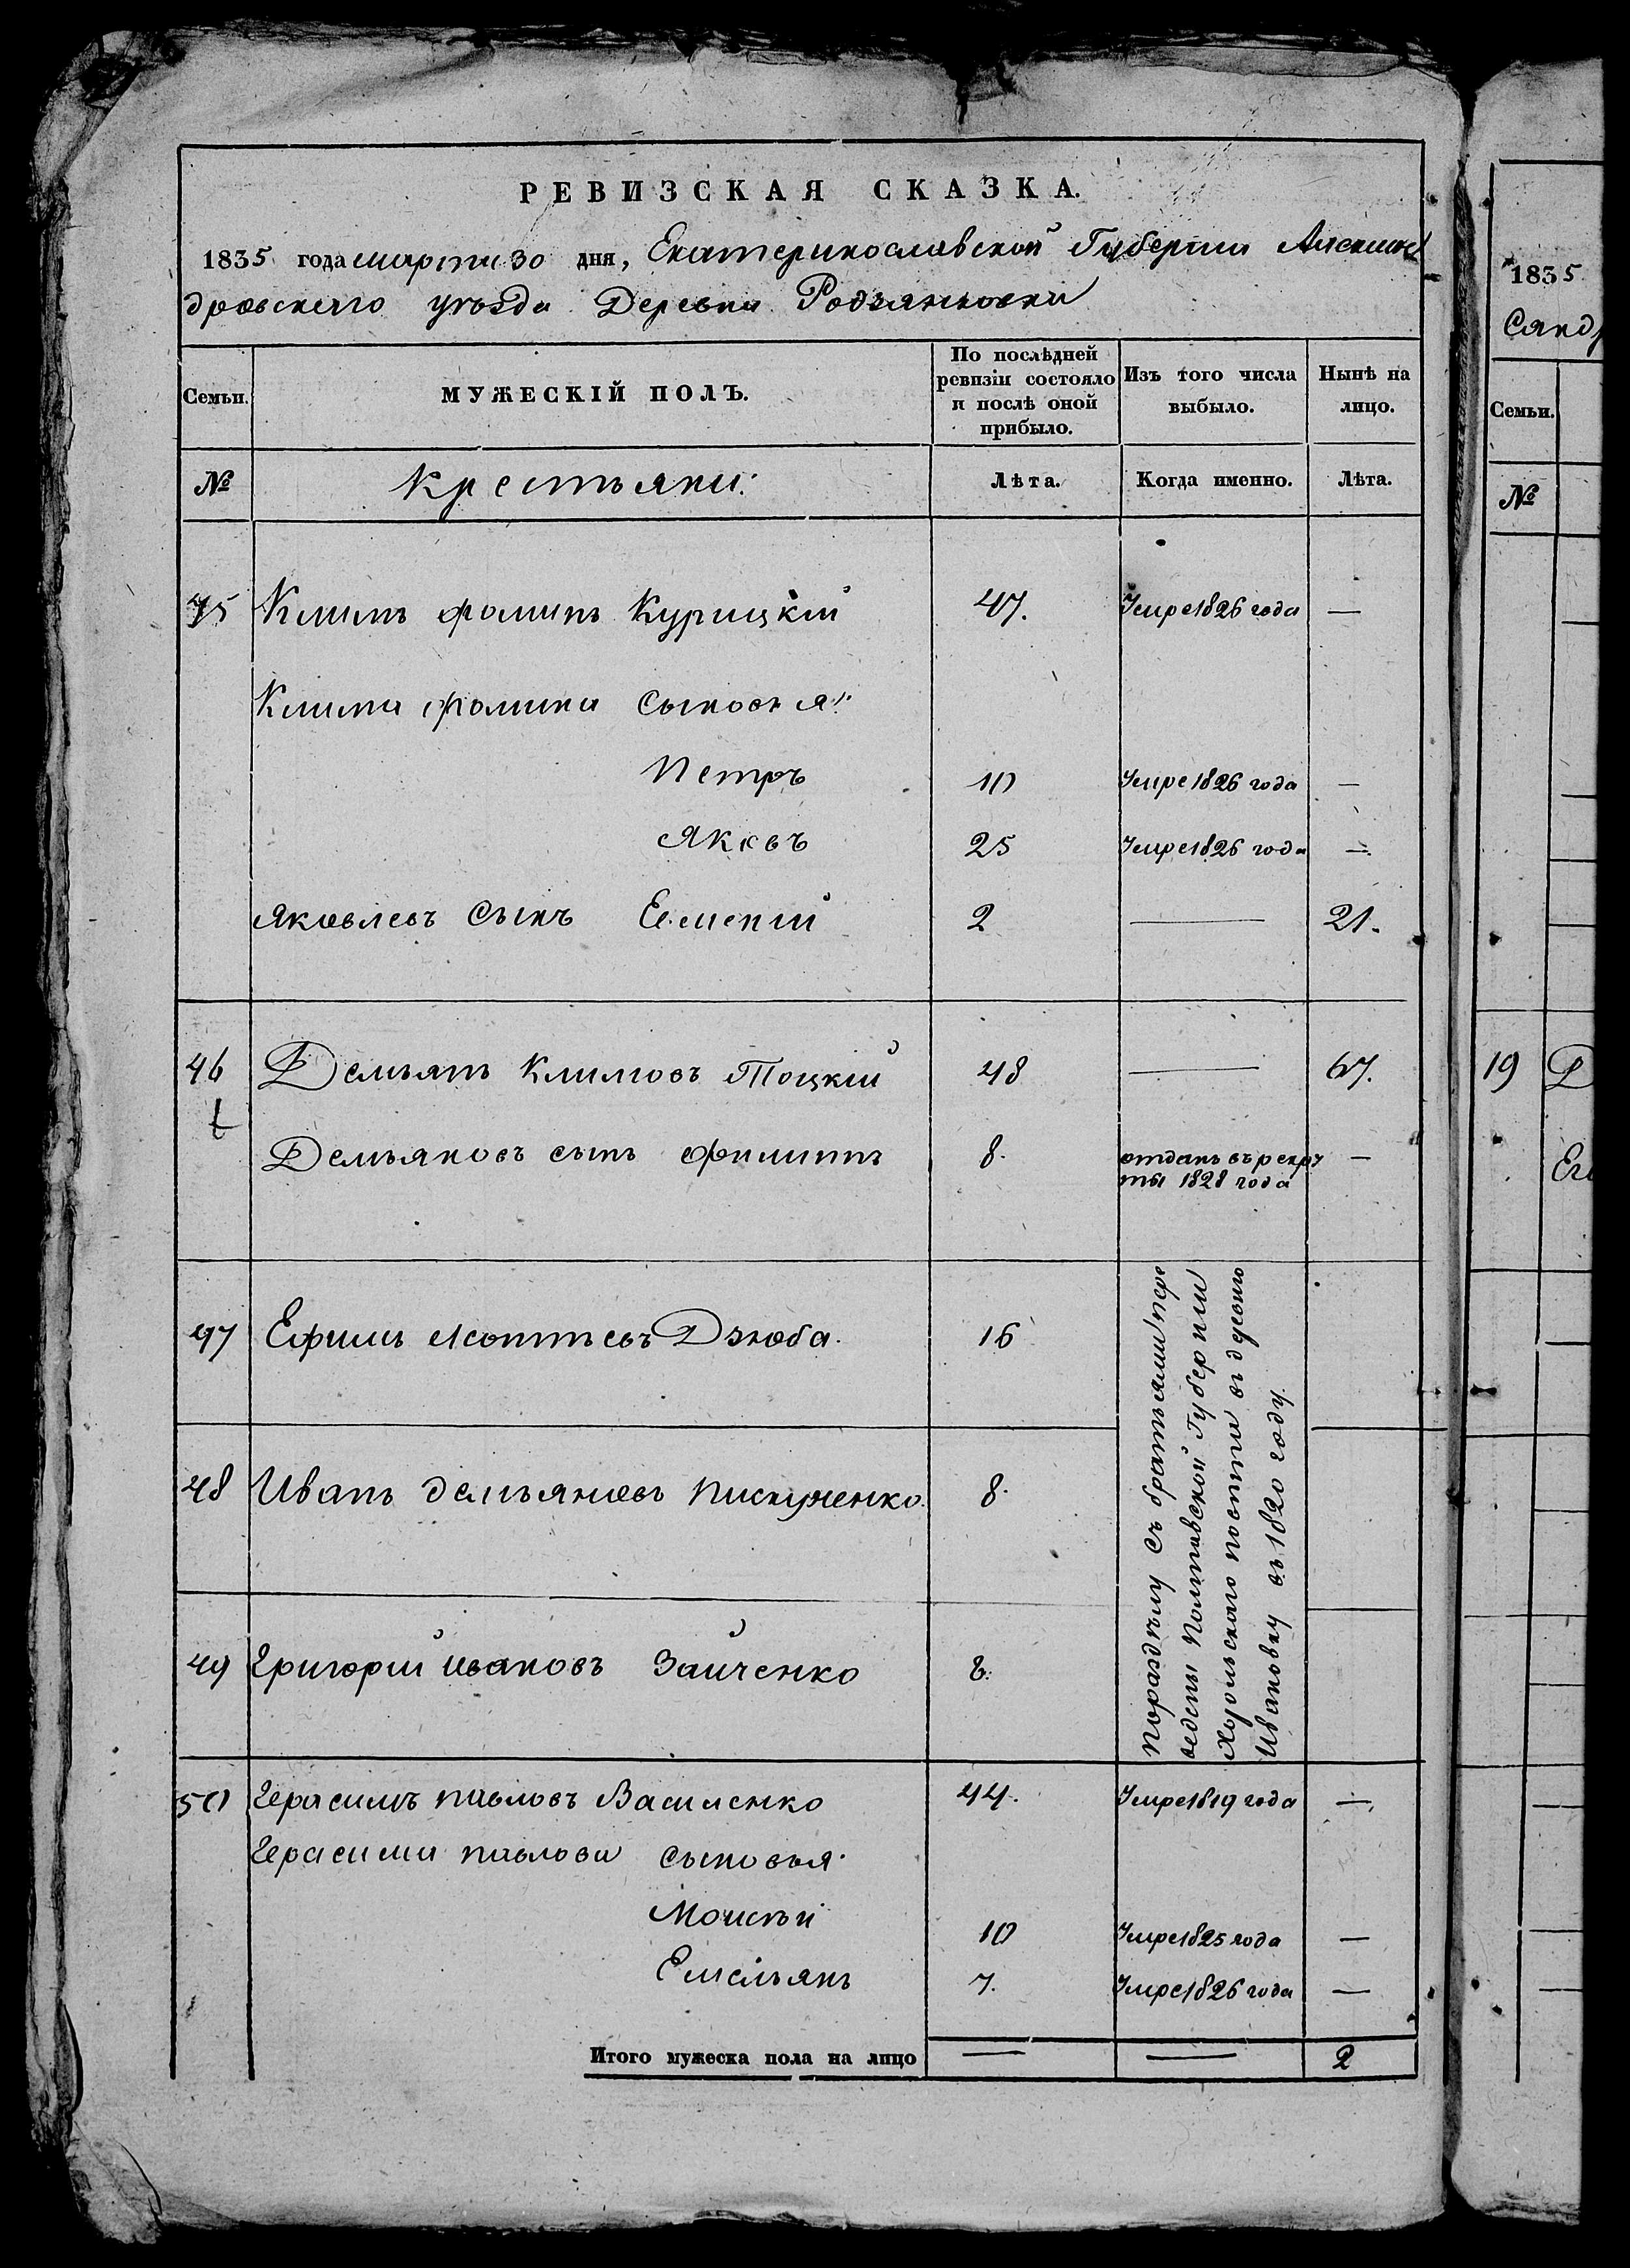 РЕВИЗСКАЯ СКАЗКА.
1835 года марта 30 дня, Екатеринославской Губернии Алексан
дровскаго уѣзда Деревни Родзянковки
Семьи.
МУЖЕСКІЙ ПОЛЪ.
По послѣдней ревизіи состояло и послѣ оной прибыло.
Изъ того числа выбыло.
Нынѣ на лицо.
№ Крестьяни: Лѣта. Когда именно. Лѣта.
45 Климъ фоминъ Курицкій 47. Умре 1826 года —
Клима фомина сыновья:
Петръ 10 Умре 1826 года —
Яковъ 25 Умре 1826 года —
Яковлевъ сынъ 2 — 21.
46 Демьянъ Климовъ Тоцкій 48 — 67.
Демьяновъ сынъ Филиппъ 8. отданъ въ рекру —
ты 1828 года
47 Ефимъ Леонтьевъ Дзюба. 16
48 Иванъ Демьяновъ 8.
49 Григорій Ивановъ Зайченко 8.
съ братьями пере
ведены Полтавской Губерніи
Хорольского повѣта въ
Ивановку въ 1820 году.
50 Герасимъ павловъ Василенко 44. Умре 1819 года —
Герасима павлова сыновья.
Моисѣй 10 Умре 1825 года —
Емельянъ 7. Умре 1826 года —
Итого мужеска пола на лицо — — 2
1835
Санд
Семьи.
№
19 Д
Ег